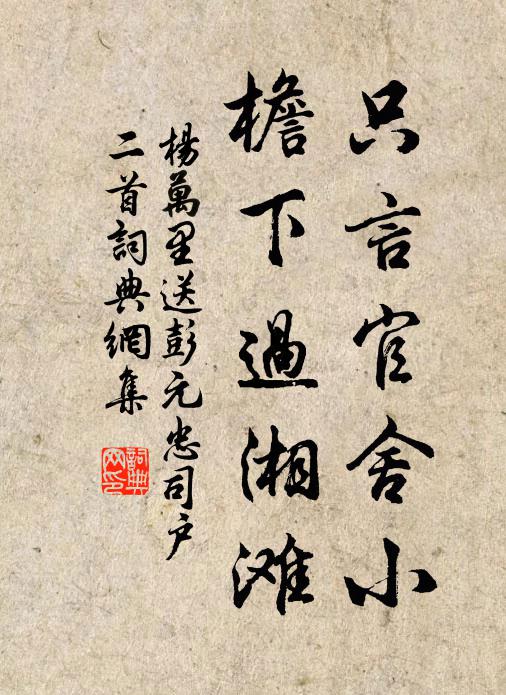 只言官舍小
檐下過湘滩
楊萬里送彭元忠司戶
二首詞典網集
詞典
网印